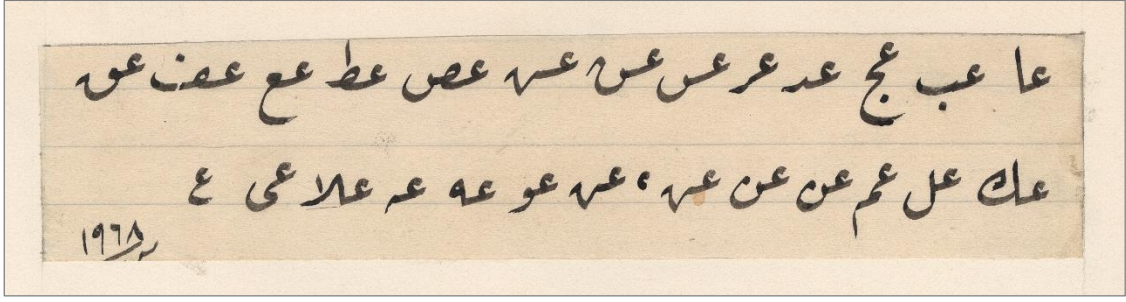 عا عب عج عد عر عس عس عس عص عط عع عف عق
عك عل عم عن عن عن ، عن عو عه عه علا عى ع
١٩٦٨